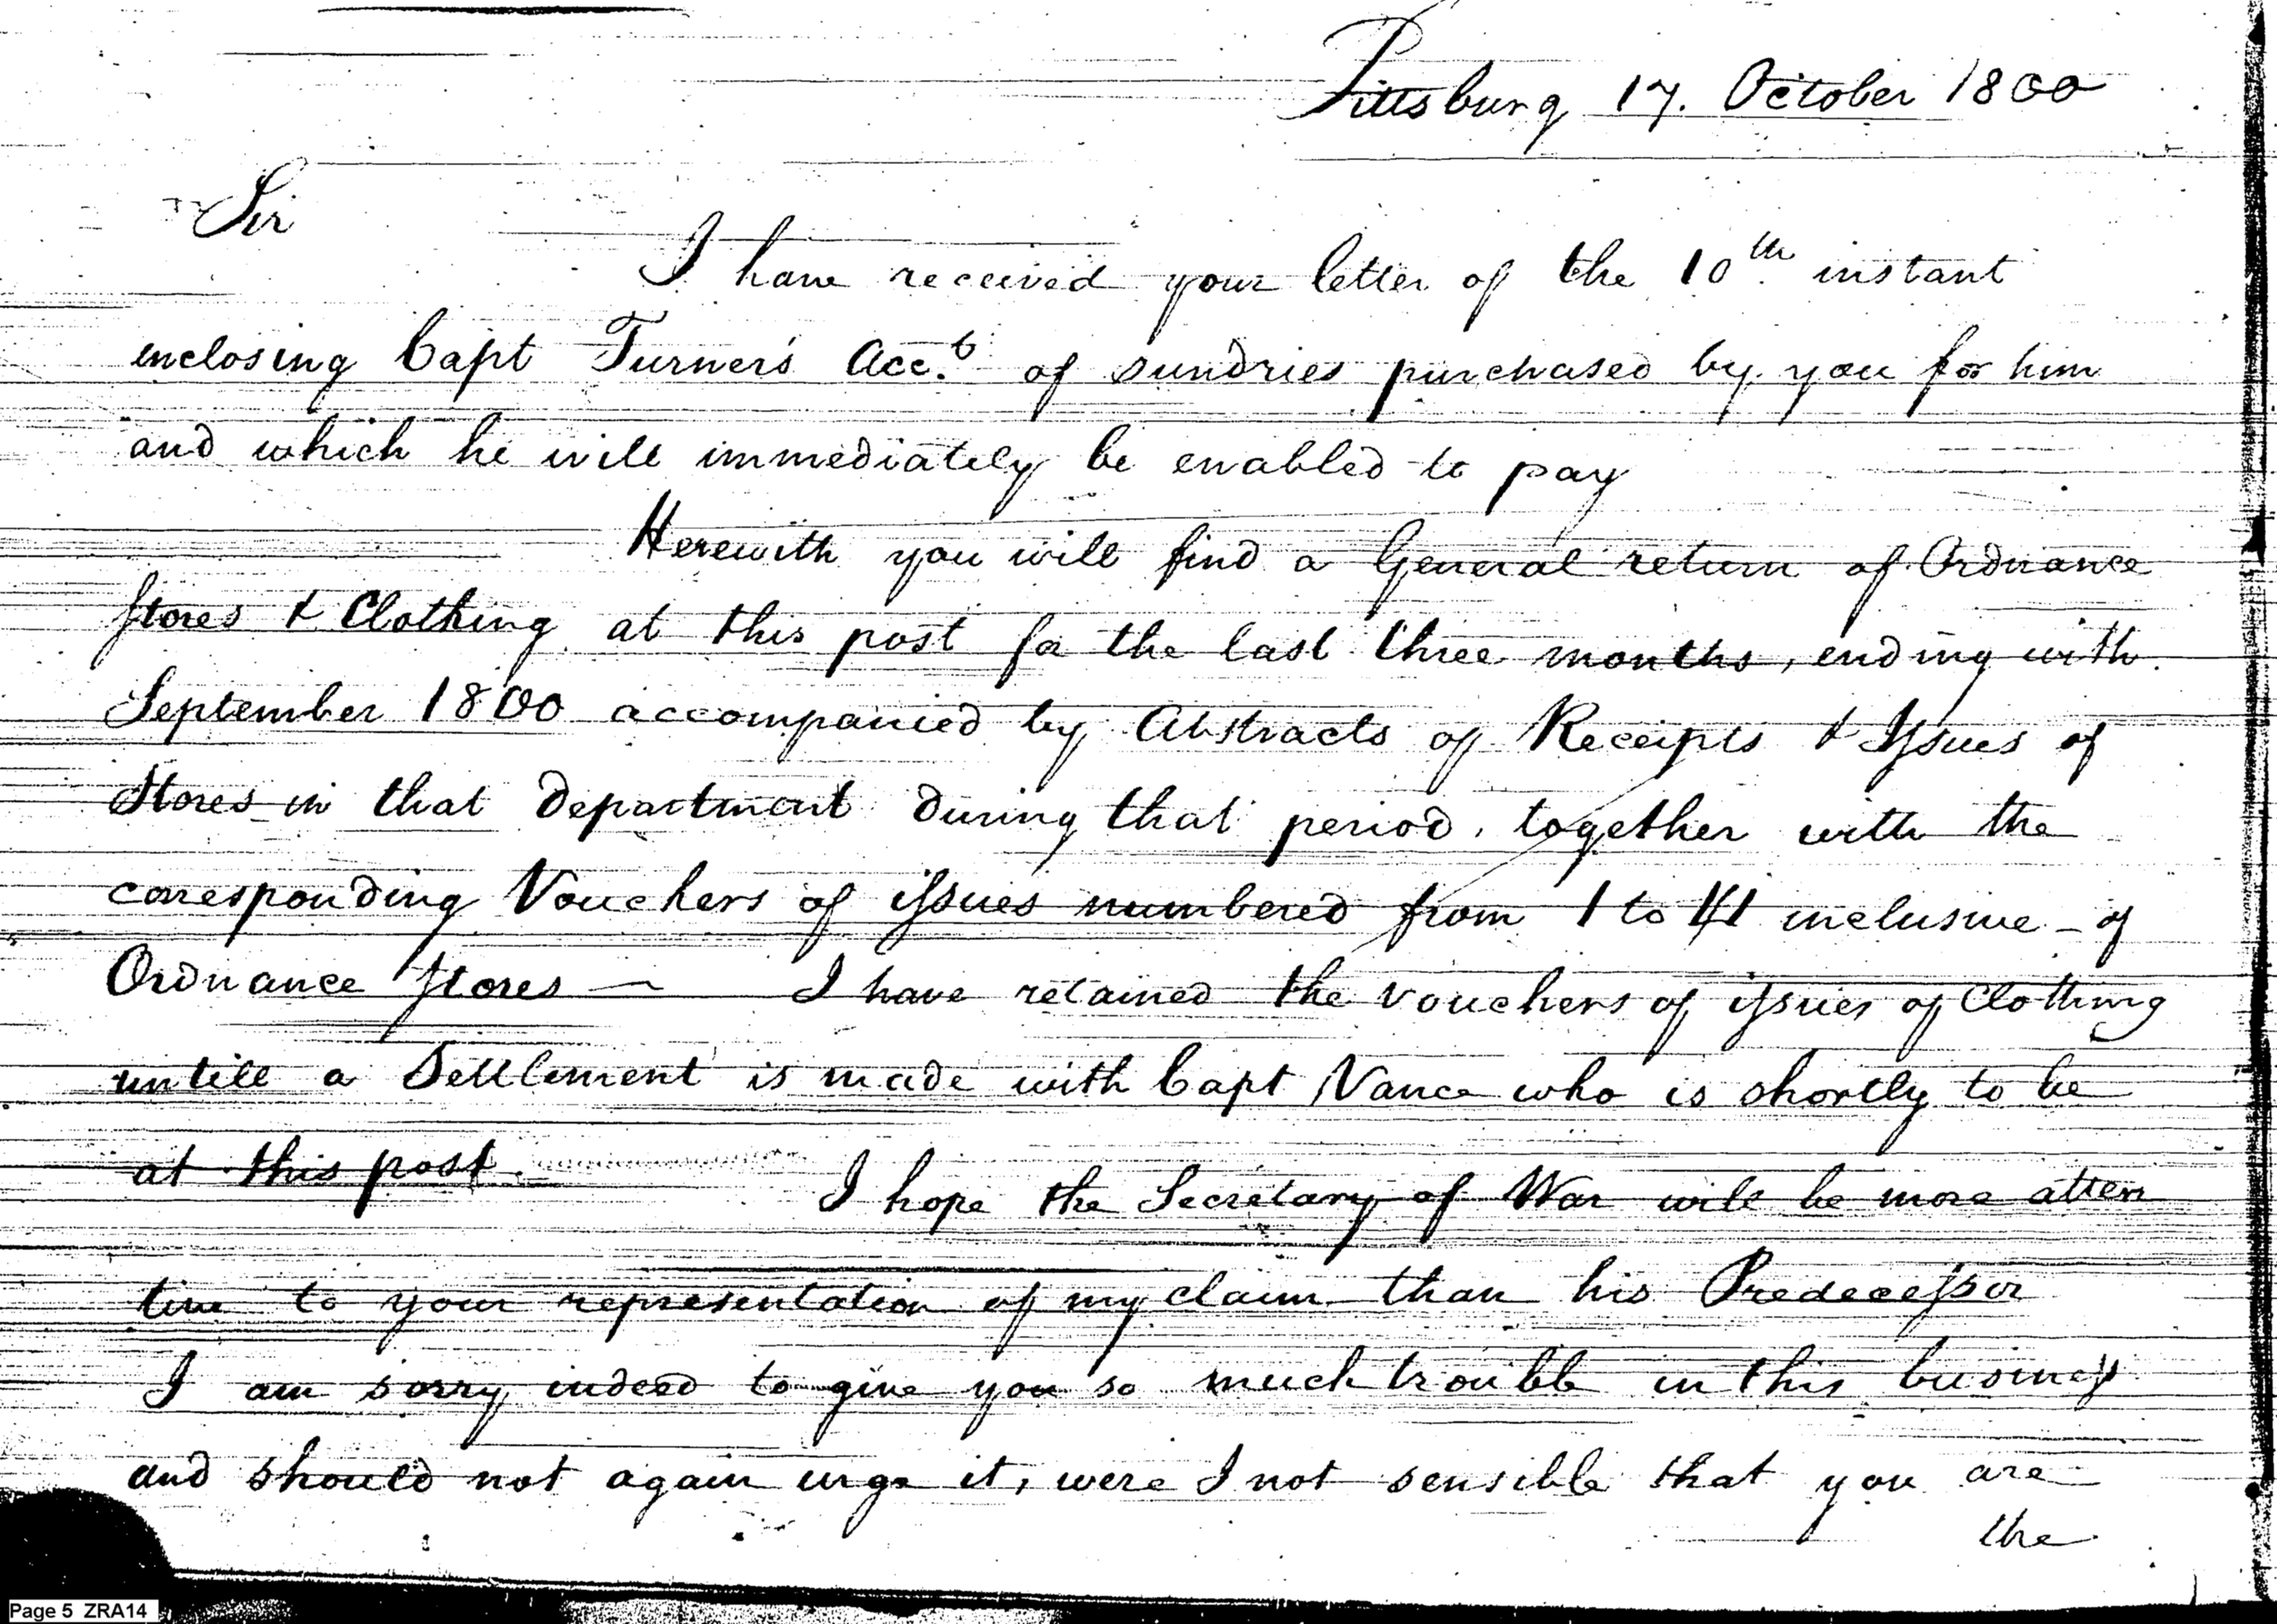 Pittsburg 17. October 1800
Sir
I have received your letter of the 10th instant
enclosing Capt Turner's Acct. of sundries purchased by you for him
and which he will immediately be enabled to pay
Herewith you will find a General return of Ordnance
Stores & Clothing at this post for the last three months, ending with
September 1800 accompanied by Abstracts of Receipts & Issues of
Stores in that department during that period, together with the
corresponding Vouchers of issues numbered from 1 to 41 inclusive - of
Ordnance Stores — I have retained the vouchers of issues of Clothing
untill a Settlement is made with Capt Vance who is shortly to be
at this post.
I hope the Secretary of War will be more atten
tive to your representation of my claim than his Predecessor
I am sorry indeed to give you so much trouble in this business
and should not again urge it, were I not sensible that you are
the
Page 5 ZRA14